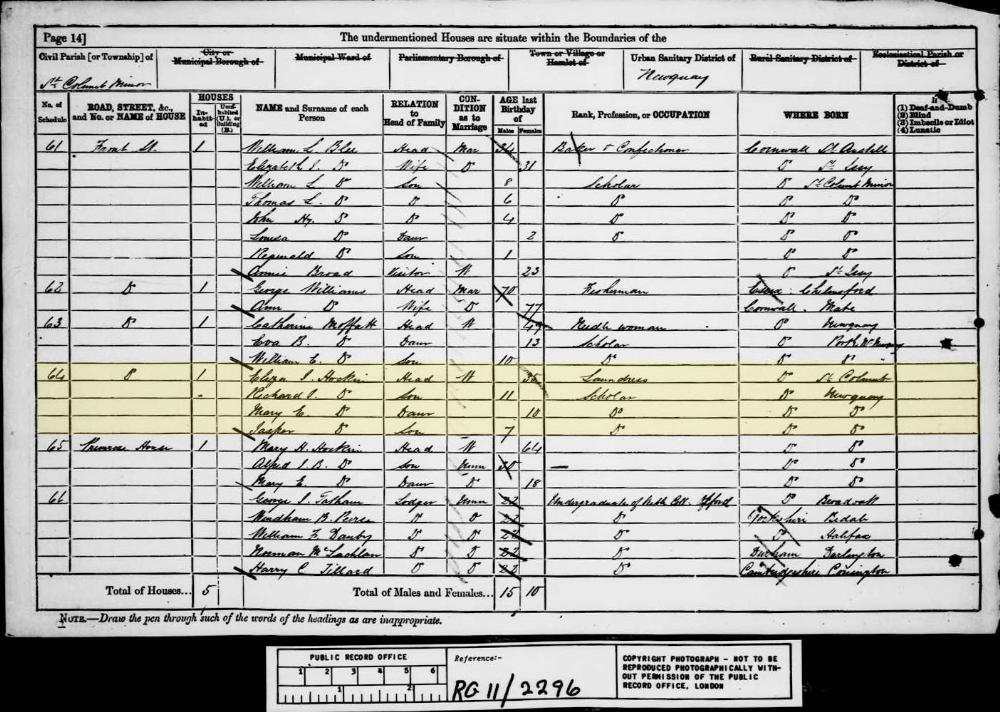 Page 14] The undermentioned Houses are situate within the Boundaries of the
Civil Parish [or Township] of City or Municipal Borough of Municipal Ward of Parliamentary Borough of Town or Village or Hamlet of Urban Sanitary District of Rural Sanitary District of Ecclesiastical Parish or District of
St Columb Minor Newquay
No. of Schedule ROAD, STREET, &c., and No. or NAME of HOUSE HOUSES Inhabited Uninhabited (U.), or Building (B.) NAME and Surname of each Person RELATION to Head of Family CONDITION as to Marriage AGE last Birthday of Males Females Rank, Profession, or OCCUPATION WHERE BORN If (1) Deaf-and-Dumb (2) Blind (3) Imbecile or Idiot (4) Lunatic
61 Front St. 1 William L. Blee Head Mar 34 Baker & Confectioner Cornwall St Austell
Elizabeth J. Do Wife Do 31 Do St Issy
William L. Do Son 8 Scholar Do St Columb Minor
Thomas L. Do Do 6 Do Do Do
John Hy. Do Do 4 Do Do Do
Louisa Do Daur 2 Do Do Do
Reginald Do Son 1 Do Do
Annie Broad Visitor W 23 Do St Issy
62 Do 1 George Williams Head Mar 70 Fisherman Essex Chelmsford
Ann Do Wife Do 77 Cornwall
63 Do 1 Catherine Moffatt Head W 49 Needle woman Do Newquay
Eva B. Do Daur 13 Scholar Do
William E. Do Son 10 Do Do Do
64 Do 1 Eliza J. Hockin Head W 36 Laundress Do St Columb
Richard J. Do Son 11 Scholar Do Newquay
Mary E. Do Daur 10 Do Do Do
Jasper Do Son 7 Do Do Do
65 Primrose House 1 Mary H. Hockin Head W 64 Do Do
Alfred J. B. Do Son Unm 30 — Do Do
Mary E. Do Daur Do 18 Do Do
66 George J. Tatham Lodger Unm 22 Undergraduate of Oxford Do
Windham B. Do Do 22 Do Yorkshire Bedale
William F. Danby Do Do 22 Do Do Halifax
Norman McLachlan Do Do 22 Do Durham Darlington
Harry C Tillard Do Do 22 Do Cambridgeshire Conington
Total of Houses... 5 Total of Males and Females... 15 10
NOTE.—Draw the pen through such of the words of the headings as are inappropriate.
PUBLIC RECORD OFFICE
1 2 3 4 5 6
1 2
Reference:-
RG 11/2296
COPYRIGHT PHOTOGRAPH - NOT TO BE
REPRODUCED PHOTOGRAPHICALLY WITH-
OUT PERMISSION OF THE PUBLIC
RECORD OFFICE, LONDON